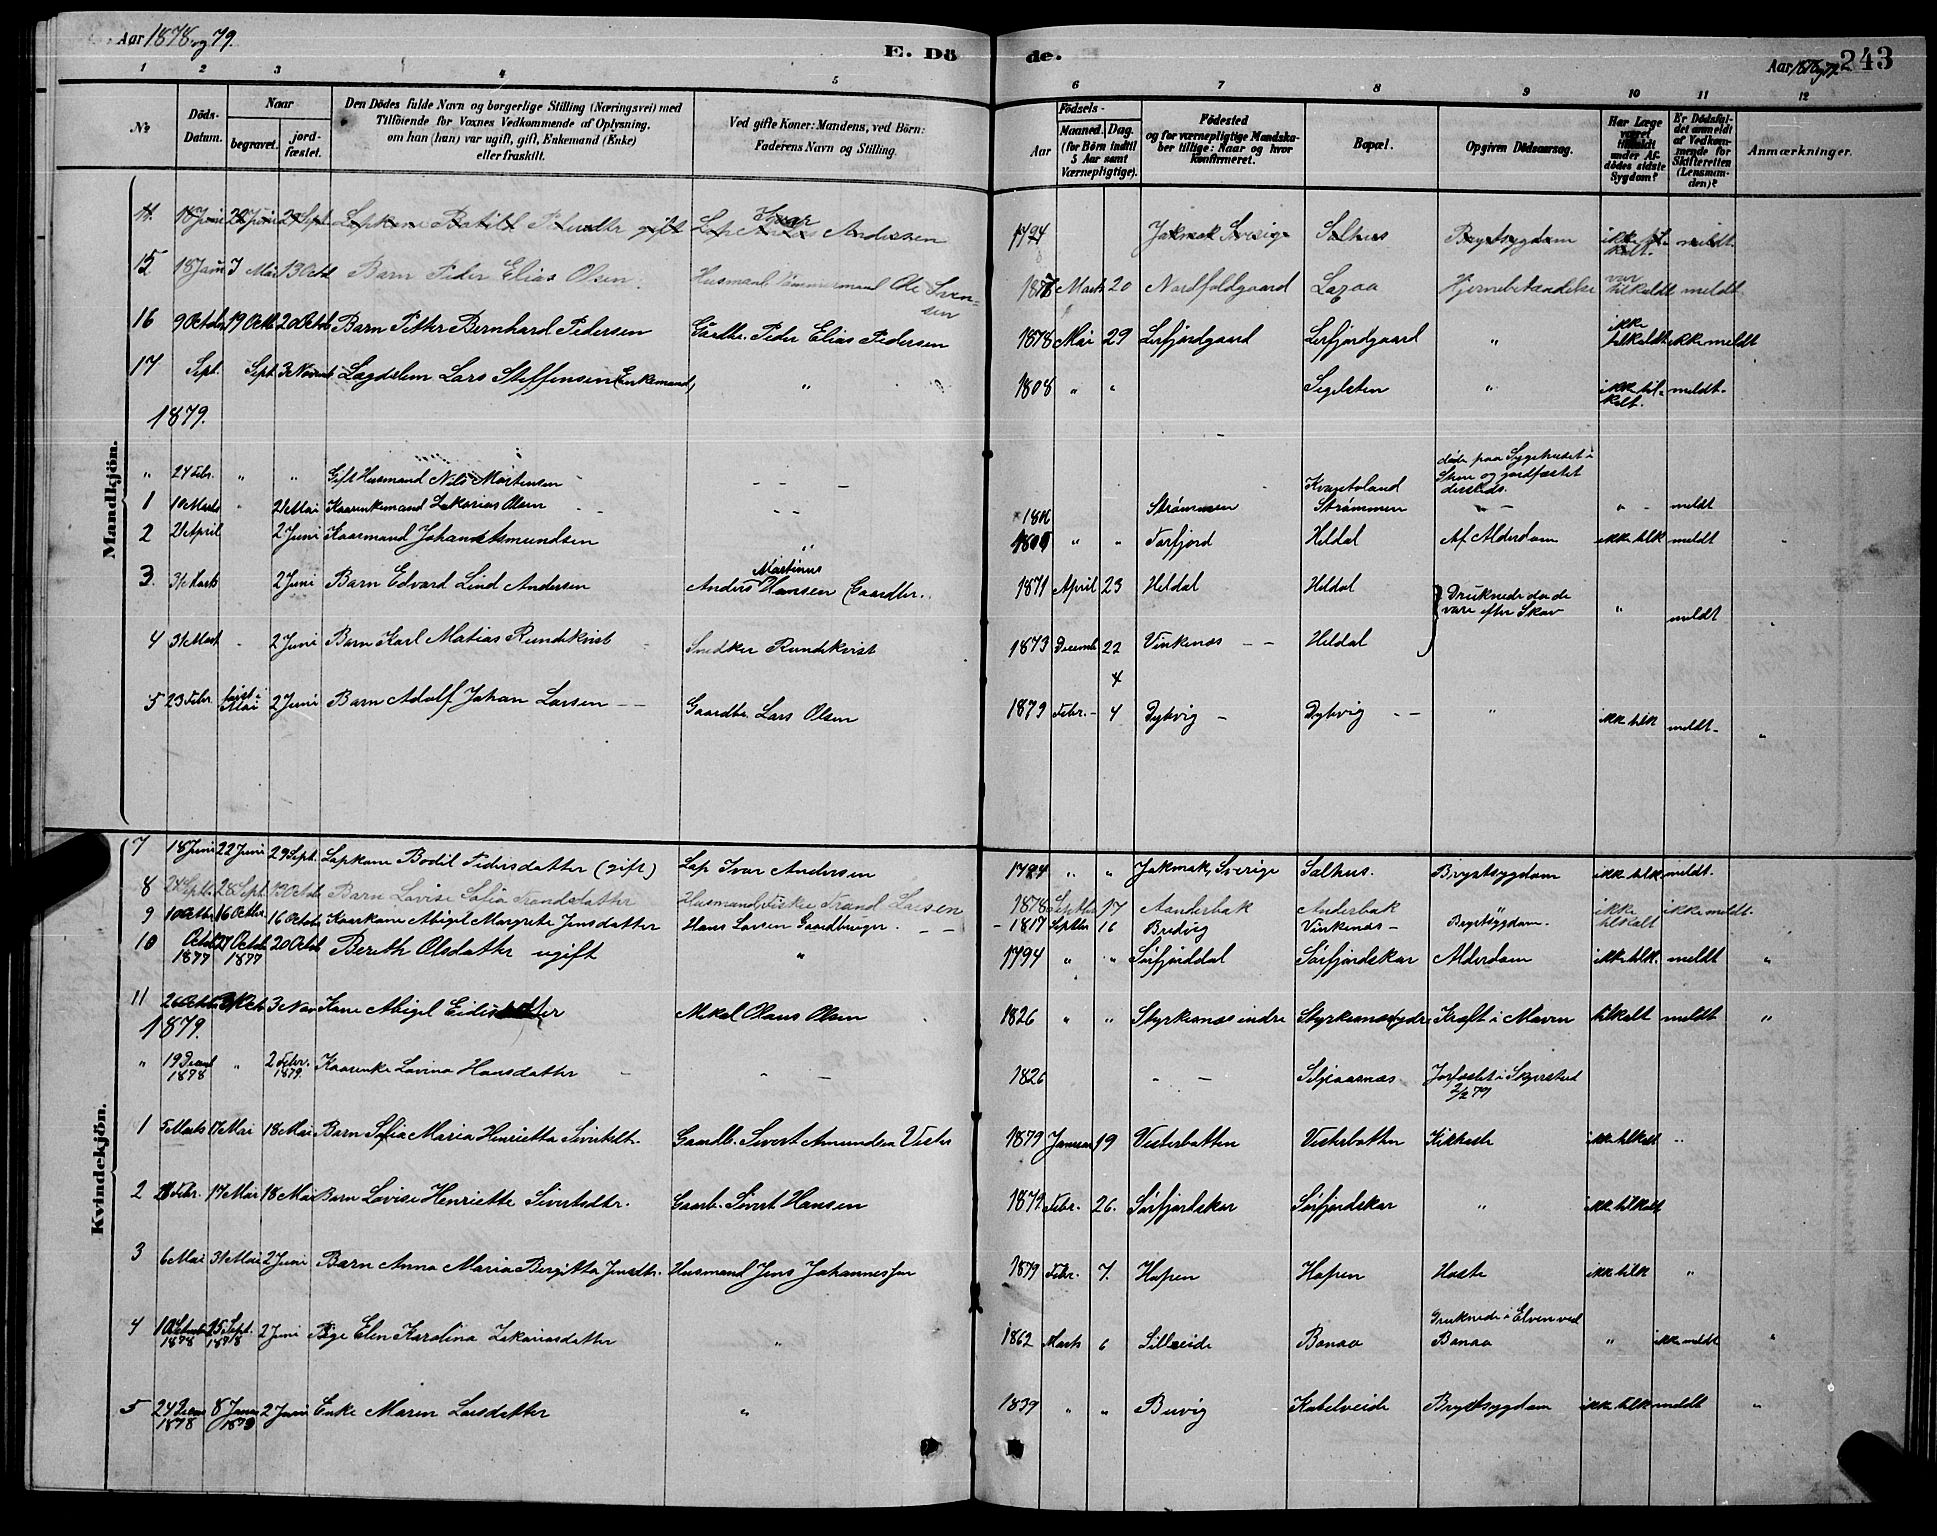 Aar 1878 og 79.
E. Dö de.
Aar 1878 og 79 243
1 2 3 4 5 6 7 8 9 10 11 12
No
Döds-Datum.
Naar
begravet.
jord-fæstet.
Den Dödes fulde Navn og borgerlige Stilling (Næringsvei) med
Tilföiende for Voxnes Vedkommende af Oplysning,
om han (hun) var ugift, gift, Enkemand (Enke)
eller fraskilt.
Ved gifte Koner: Mandens, ved Börn:
Faderens Navn og Stilling.
Födsels-
Aar
Maaned. Dag.
(for Börn indtil
5 Aar samt
Værnepligtige).
Födested
og for værnepligtige Mandska-
ber tillige: Naar og hvor
konfirmeret.
Bopæl.
Opgiven Dödsaarsag.
Har Læge
været
tilkaldt
under Af-
dödes sidste
Sygdom?
Er Dödsfal-
det anmeldt
af Vedkom-
mende for
Skifteretten
(Lensman-
den)?
Anmærkninger.
Mandkjön.
18 Juni 22 Juni 29 Sept Lapkone Bodil gift Lap Ivar Andersen 1794 Jokmok Sverige Salhus Brystsygdom meldt
15 3 Mai 13 Octb Barn Peder Elias Olsen. Husmand Tømmermand Ole Svensen 1878 Marts 20 Nordfoldgaard Hjernebetændelse var tilkaldt meldt
16 9 Octob 19 Octb 20 Octob Barn Petter Bernhard Pedersen Gaardbr. Peder Elias Pedersen 1878 Mai 29 Leifjordgaard Leifjordgaard " ikke tilkaldt ikke meldt
17 Sept. Sept. 3 Novemb Lægdslem Lars Steffensen Enkemand, " 1808 " " Segelsten " ikke tilkalt. meldt.
1879.
" 24 Febr. " " Gift Husmand Nils Mortensen Kvantoland døde paa Sygehuset i
og jordfæstet
dersteds.
1 10 Marts " 21 Mai Kaarenkemand Zakarias Olsen 1806 Strømmen Strømmen " meldt
2 21 April 2 Juni Kaarmand Johan Asmundsen " " Torfjord Heldal Af Alderdom ikke tilk meldt
3. 31 Marts 2 Juni Barn Edvard Lind Andersen Anders Martinus Hansen Gaardbr. 1871 April 23 Heldal Heldal Druknede da de
vare efter Skav " meldt
4 31 Mart 2 Juni Barn Karl Matias Rundkvist Snedker Rundkvist 1873 Decemb 22 Vinkenæs Heldal
5 23 Febr. Mai 2 Juni Barn Adolf Johan Larsen Gaardbr. Lars Olsen 1879 Febr. 4 Dybvig Dybvig " ikke tilk meldt
Kvindekjön.
7 18 Juni 22 Juni 29 Sept. Lapkone Bodil Pedersdatter (gift) Lap Ivar Andersen " " Jokmok, Sverige Salhus. Brystsygdom ikke tilk. meldt.
8 28 Sept. 13 Octob Barn Lovise Sofia Trondsdatter Husmand, Fisker Trond Larsen 1878 Septbr 17 Aanderbak Anderbak " ikke tilkalt ikke meldt.
9 10 Octbr 16 Octbr. 16 Octob Kaarkone Abigel Margrete Jensdatter Hans Larsen Gaardbruger 1817 Septbr 16 Bredvig Vinkenæs Brystsygdom.
10 Octob 1877 27 Octob 1877 20 Octob Berith Olsdatter ugift " 1794 " " Sørfjorddal Sørfjordskar Alderdom ikke tilk. meldt "
11 3 Nov Kone Abigel Mikal Olaus Olsen 1826 " " Styrkesnæs indre Styrkesnæs ydre Kræft i Maven tilkalt meldt "
1879.
" 19 Decemb 1878 " 2 Febr. 1879. Kaarenke Lovina Hansdatter 1826 Jorfæstet i Skjerstad
2/2 79
1 5 Marts 17 Mai 18 Mai Barn Sofia Maria Henrietta Sivertsdt. Gaardb. Sivert Amundsen 1879 Januar 19 Vesterbotten Vesterbotten Kikhoste ikke tilkalt "
2 28 Febr. 17 Mai 18 Mai Barn Lovise Henriette Sivertsdtr. Gaarb. Sivert Hansen 1879 Febr. 26. Sørfjordskar Sørfjordskar " ikke tilkalt
3 6 Mai 31 Mai 2 Juni Barn Anna Maria Bergitta Jensdtr. Husmand Jens Johannessen 1879 Febr. 7. Hopen Hopen Hoste ikke tilk "
4 1878 15 Sept. 1878 2 Juni Pige Elen Karolina Zakariasdatter " 1862 Marts 6 Silleide Bonaa Druknede i Elven ved
Bonaa " ikke meldt "
5 24 Decem 1878 8 Janu 1879 2 Juni Enke Maren Larsdatter " 1839 " " Buvig Kabelveide Brystsygdom ikke tilk meldt "